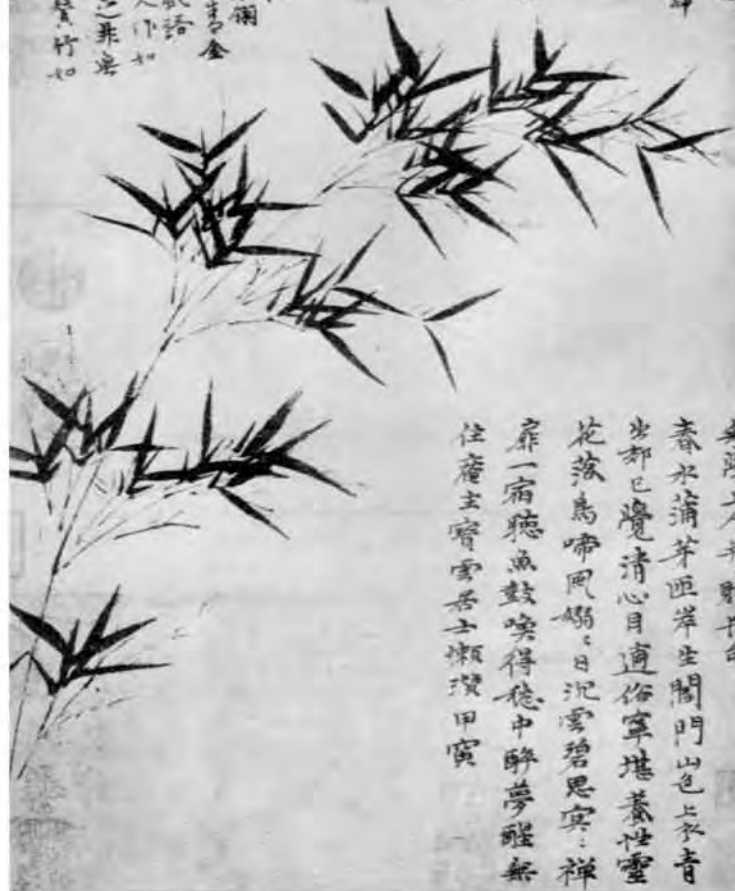 春水蒲芽匝岸生閶門山色上衣青
出郭已覺清心目適俗寧堪養性靈
花落鳥啼風嫋〻日沉雲碧思冥〻禪
扉一宿聽魚鼓喚得中醉夢醒無
住庵主寶雲居士懶瓚甲寅
爾
金
語
人作如
之非
竹如